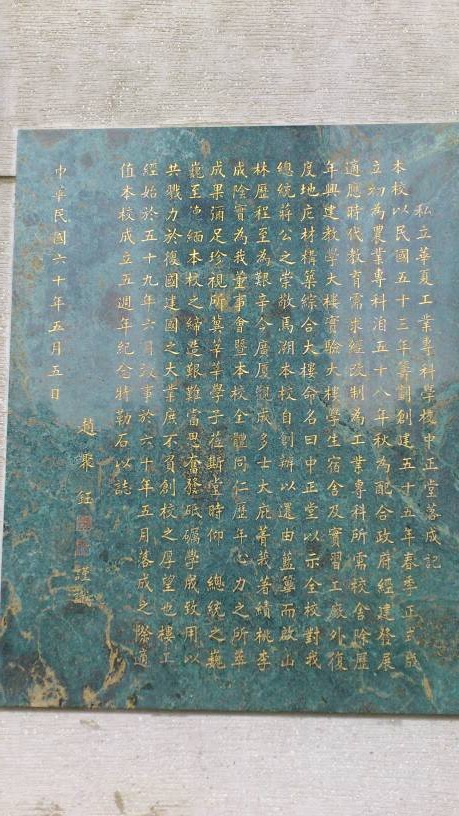 私立華夏工業專科學校中正堂落成記
本校以民國五十三年籌劃創建五十五年春季正式成
立初為農業專科洎五十八年秋為配合政府經建發展
適應時代教育需求經改制為工業專科所需校舍除歷
年興建教學大樓實驗大樓學生宿舍及實習工廠外復
度地庀材構築綜合大樓命名曰中正堂以示全校對我
總統蔣公之崇敬焉溯本校自創辦以還由藍篳而啟山
林歷程至為艱辛今廣廈觀成多士大庇菁莪著績桃李
成陰實為我董事會暨本校全體同仁歷年心力之所萃
成果彌足珍視所冀莘莘學子蒞斯堂時仰 總統之巍
巍至德緬本校之締造艱難富思奮發砥礪學成致用以
共戮力於復國建國之大業庶不負創校之厚望也樓工
經始於五十九年六月竣事於六十年五月落成之際適
值本校成立五週年紀念特勒石以誌
趙聚鈺 謹識
中華民國六十年五月五日